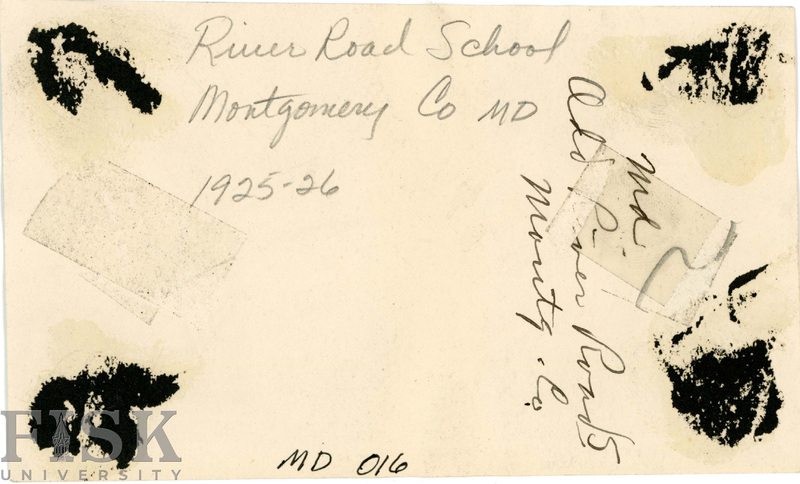 River Road School
Montgomery Co MD
1925-26
Md
Add. River Road 5
Montg. Co.
MD 016
FISK
UNIVERSITY